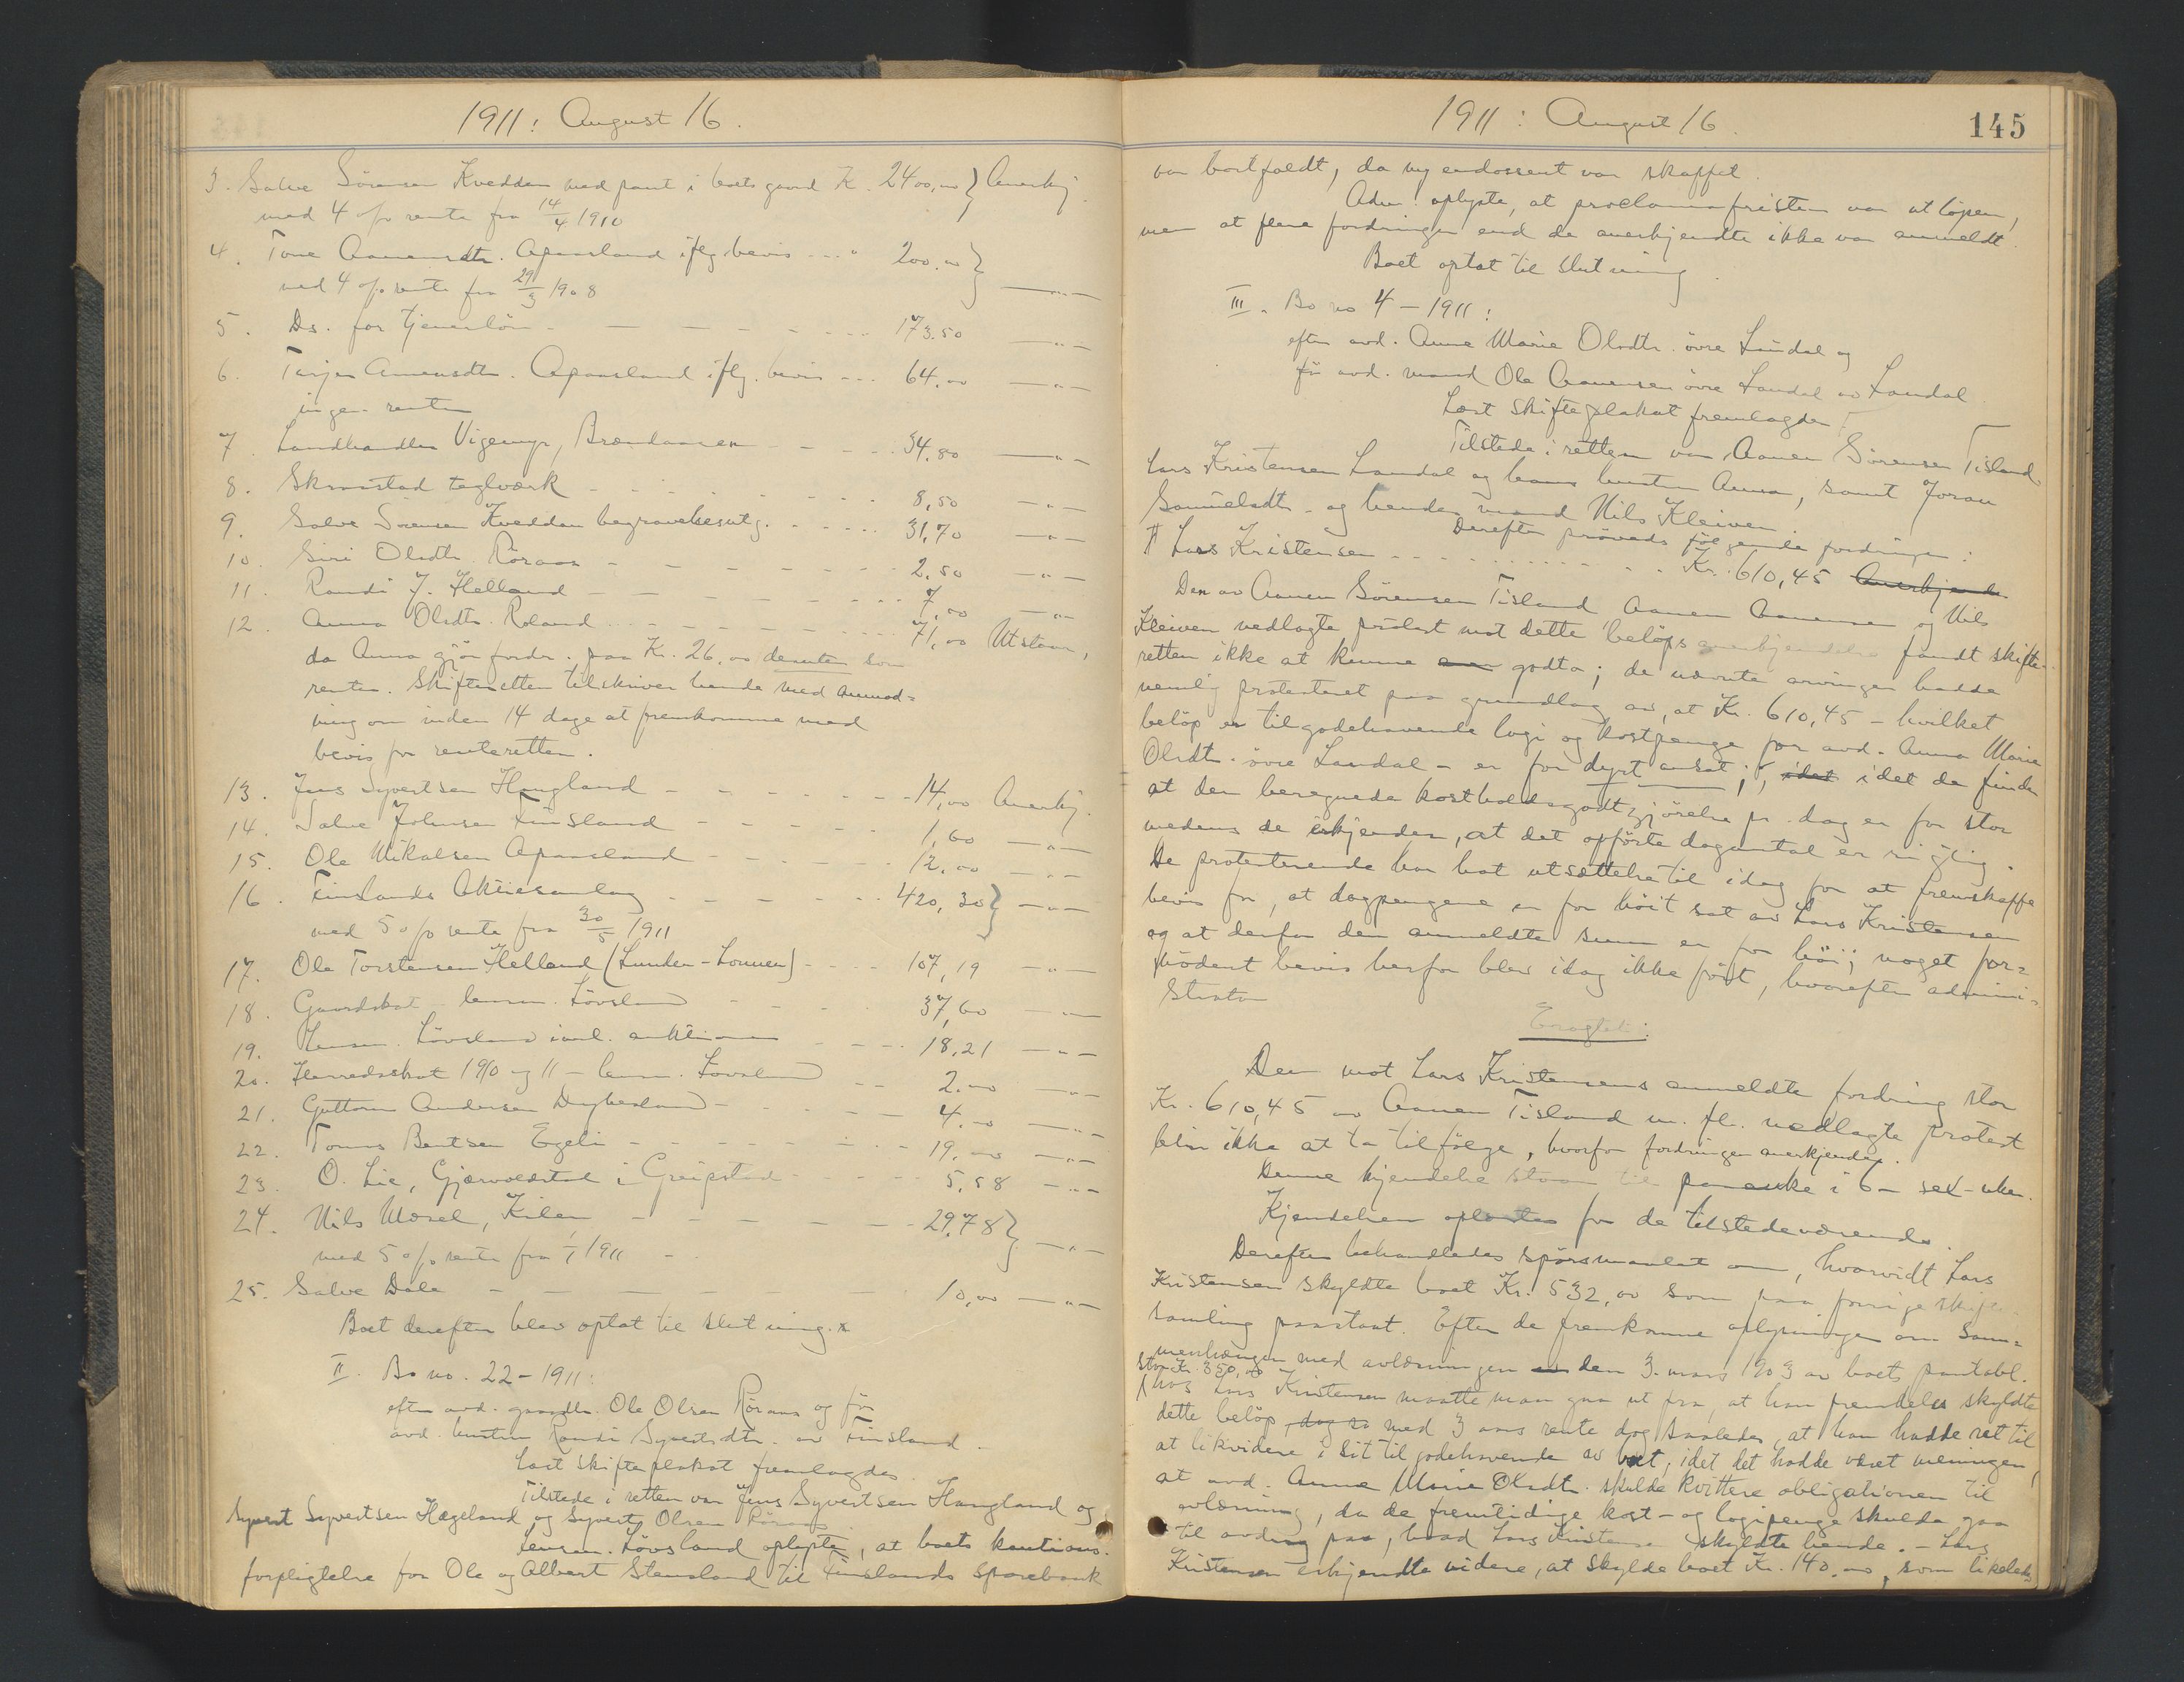 1911: August 16.
3. Salve Sörensen Kvedden med pant i boets gaard K. 2400,00 } Anerkj.
med 4 o/o rente fra 14/4 1910
4. Tone Aanensdtr. Apaasland iflg. bevis ... " 200.00 }
med 4 o/o rente fra 29/3 1908 — " —
5. Ds. for tjenerlön - - - - 173.50 — " —
6. Tarjer Aanensdtr. Apaasland iflg. bevis --- 64.00 — " —
ingen rente
7. Landhandler Vigemyr, Brændaasen - - - 34.80 — " —
8. Skraastad teglværk - - - - 8,50 — " —
9. Salve Sörensen Kvedden begravelsesutg. - - - 31,70 — " —
10. Siri Olsdtr. Röraas - - - - 2,50 — " —
11. Randi J. Helland - - - - 7,00 — " —
12. Anna Olsdtr. Roland - - - - 71,00 Utstaar,
da Anna gjör fordr. paa Kr. 26,00 desuten som
renter. Skifteretten tilskriver hende med anmod=
ning om inden 14 dage at fremkomme med
bevis for renteretten.
13. Jens Syvertsen Haugland - - - - 14,00 Anerkj.
14. Salve Johnsen Finsland - - - - 1,60 — " —
15. Ole Mikalsen Apaasland - - - - 12,00 — " —
16. Finslands Aktiesamlag - - - - 420,30 } — " —
med 5 o/o rente fra 30/5 1911
17. Ole Torstensen Helland (Lunden-Lonnen) - - - 107,19 — " —
18. Gaardskat lensm. Lövsland - - - 37,60 — " —
19. Lensm. Lövsland iaal. auktionen - - - 18,21 — " —
20. Herredsskat 1910 og 11 - lensm. Lövsland - - 2.00 — " —
21. Guttorm Andersen Dybesland - - - - 4.00 — " —
22. Toms Bentsen Egeli - - - - 19.00 — " —
23. O. Lie, Gjærvoldstad i Greipstad - - - 5,58 — " —
24. Nils Mosel, Kilen - - - - 29.78 } — " —
med 5 o/o rente fra 1/ 1911
25. Salve Dale - - - - 10,00 — " —
Boet derefter blev optat til slutning.
II. Bo no. 22 - 1911:
efter avd. gaardbr. Ole Olsen Röraas og för
avd. hustru Randi Syvertsdtr. av Finsland.
Læst skifteplakat fremlagdes.
Tilstede i retten var Jens Syvertsen Haugland og
Syvert Syvertsen Hægeland og Syvert Olsen Röraas
Lensm. Lövsland oplyste, at boets kautions-
forpligtelse for Ole og Albert Stensland til Finslands Sparebank
1911: August 16. 145
var bortfaldt, da ny endossent var skaffet.
Adm. oplyste, at proclamafristen var utlöpen,
men at flere fordringer end de anerkjendte ikke var anmeldt.
Boet optat til slutning.
III. Bo no 4 - 1911:
efter avd. Anne Marie Olsdtr. övre Laudal og
för avd. mand Ole Aanensen övre Laudal av Laudal.
Læst skifteplakat fremlagdes.
Tilstede i retten var Aanen Sörensen Tisland,
Lars Kristensen Laudal og hans hustru Anna, samt Joran
Samuelsdtr. og hendes mand Nils Kleiven.
Derefter prövedes fölgende fordringer:
Lars Kristensen - - - - Kr. 610,45 Anerkjendes
Den av Aanen Sörensen Tisland Aanen Aanensen og Nils
Kleiven nedlagte protest mot dette belöps anerkjendelse fandt skifte-
retten ikke at kunne godta; de nævnte arvinger hadde
nemlig protesteret paa grundlag av, at Kr. 610,45 - hvilket
belöp er tilgodehavende logi og kostpenge for avd. Anne Marie
Olsdtr. övre Laudal - er for dyrt ansat; idet idet de finder
at den beregnede kostholdsgodtgjörelse pr. dag er for stor
medens de erkjender, at det opförte dagantal er rigtig.
De protesterende har hat utsættelse til idag for at fremskaffe
bevis for, at dagpengene er for höit sat av Lars Kristensen
og at derfor den anmeldte sum er for höi; noget for=
nödent bevis herfor blev idag ikke fört, hvorefter admini=
strator
Eragtet:
Den mot Lars Kristensens anmeldte fordring stor
Kr. 610,45 av Aanen Tisland m. fl. nedlagte protest
blir ikke at ta tilfölge, hvorfor fordringen anerkjendes.
Denne kjendelse staar til paaanke i 6 - sex - uker.
Kjendelsen oplæstes for de tilstedeværende.
Derefter behandledes spörsmaalet om, hvorvidt Lars
Kristensen skyldte boet Kr. 532,00 som paa forrige skifte-
samling paastaat. Efter de fremkomne oplysninger om sam=
menhængen med avlæsningen den 3. mars 1903 av boets pantobl.
stor Kr. 350,00
hos Lars Kristensen maatte man gaa ut fra, at han fremdeles skyldte
dette belöp, dog sa med 3 aars rente dog saaledes, at han hadde ret til
at likvidere i sit tilgodehavende av boet, idet det hadde været meningen,
at avd. Anne Marie Olsdtr. skulde kvittere obligationen til
avlæsning, da de fremtidige kost- og logipenge skulde gaa
til avdrag paa, hvad Lars Kristensen skyldte hende. - Lars
Kristensen erkjendte videre, at skylde boet Kr. 140.00, som likeledes